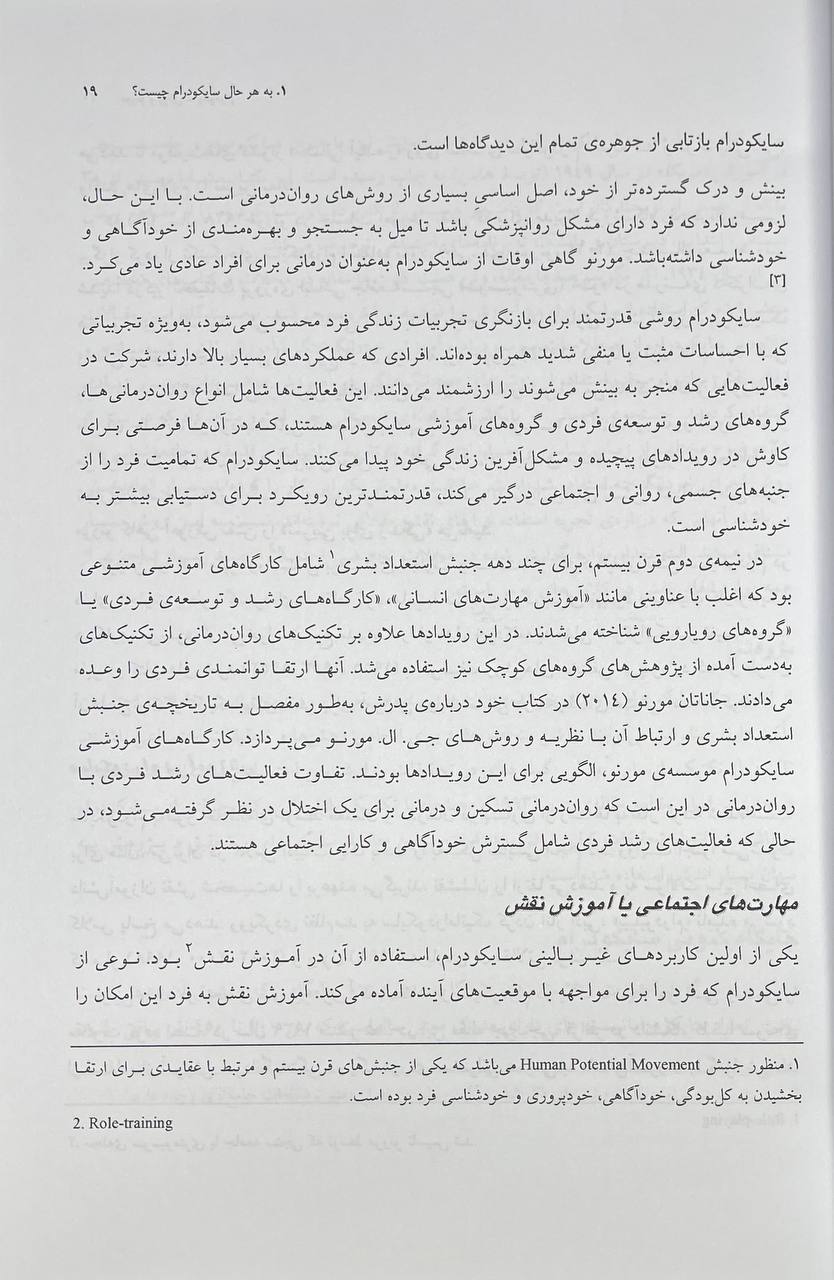 ۱. به هر حال سایکودرام چیست؟ ۱۹
سایکودرام بازتابی از جوهره‌ی تمام این دیدگاه‌ها است.
بینش و درک گسترده‌تر از خود، اصل اساسی بسیاری از روش‌های روان‌درمانی است. با این حال،
لزومی ندارد که فرد دارای مشکل روانپزشکی باشد تا میل به جستجو و بهره‌مندی از خودآگاهی و
خودشناسی داشته‌باشد. مورنو گاهی اوقات از سایکودرام به‌عنوان درمانی برای افراد عادی یاد می‌کرد.
[۳]
سایکودرام روشی قدرتمند برای بازنگری تجربیات زندگی فرد محسوب می‌شود، به‌ویژه تجربیاتی
که با احساسات مثبت یا منفی شدید همراه بوده‌اند. افرادی که عملکردهای بسیار بالا دارند، شرکت در
فعالیت‌هایی که منجر به بینش می‌شوند را ارزشمند می‌دانند. این فعالیت‌ها شامل انواع روان‌درمانی‌ها،
گروه‌های رشد و توسعه‌ی فردی و گروه‌های آموزشی سایکودرام هستند، که در آن‌ها فرصتی برای
کاوش در رویدادهای پیچیده و مشکل‌آفرین زندگی خود پیدا می‌کنند. سایکودرام که تمامیت فرد را از
جنبه‌های جسمی، روانی و اجتماعی درگیر می‌کند، قدرتمندترین رویکرد برای دستیابی بیشتر به
خودشناسی است.
در نیمه‌ی دوم قرن بیستم، برای چند دهه جنبش استعداد بشری۱ شامل کارگاه‌های آموزشی متنوعی
بود که اغلب با عناوینی مانند «آموزش مهارت‌های انسانی»، «کارگاه‌های رشد و توسعه‌ی فردی» یا
«گروه‌های رویارویی» شناخته می‌شدند. در این رویدادها علاوه بر تکنیک‌های روان‌درمانی، از تکنیک‌های
به‌دست آمده از پژوهش‌های گروه‌های کوچک نیز استفاده می‌شد. آنها ارتقا توانمندی فردی را وعده
می‌دادند. جاناتان مورنو (۲۰۱۴) در کتاب خود درباره‌ی پدرش، به‌طور مفصل به تاریخچه‌ی جنبش
استعداد بشری و ارتباط آن با نظریه و روش‌های جی. ال. مورنو می‌پردازد. کارگاه‌های آموزشی
سایکودرام موسسه‌ی مورنو، الگویی برای این رویدادها بودند. تفاوت فعالیت‌های رشد فردی با
روان‌درمانی در این است که روان‌درمانی تسکین و درمانی برای یک اختلال در نظر گرفته‌می‌شود، در
حالی که فعالیت‌های رشد فردی شامل گسترش خودآگاهی و کارایی اجتماعی هستند.
مهارت‌های اجتماعی یا آموزش نقش
یکی از اولین کاربردهای غیر بالینی سایکودرام، استفاده از آن در آموزش نقش۲ بود. نوعی از
سایکودرام که فرد را برای مواجهه با موقعیت‌های آینده آماده می‌کند. آموزش نقش به فرد این امکان را
۱. منظور جنبش Human Potential Movement می‌باشد که یکی از جنبش‌های قرن بیستم و مرتبط با عقایدی برای ارتقا
بخشیدن به کل‌بودگی، خودآگاهی، خودپروری و خودشناسی فرد بوده است.
2. Role-training